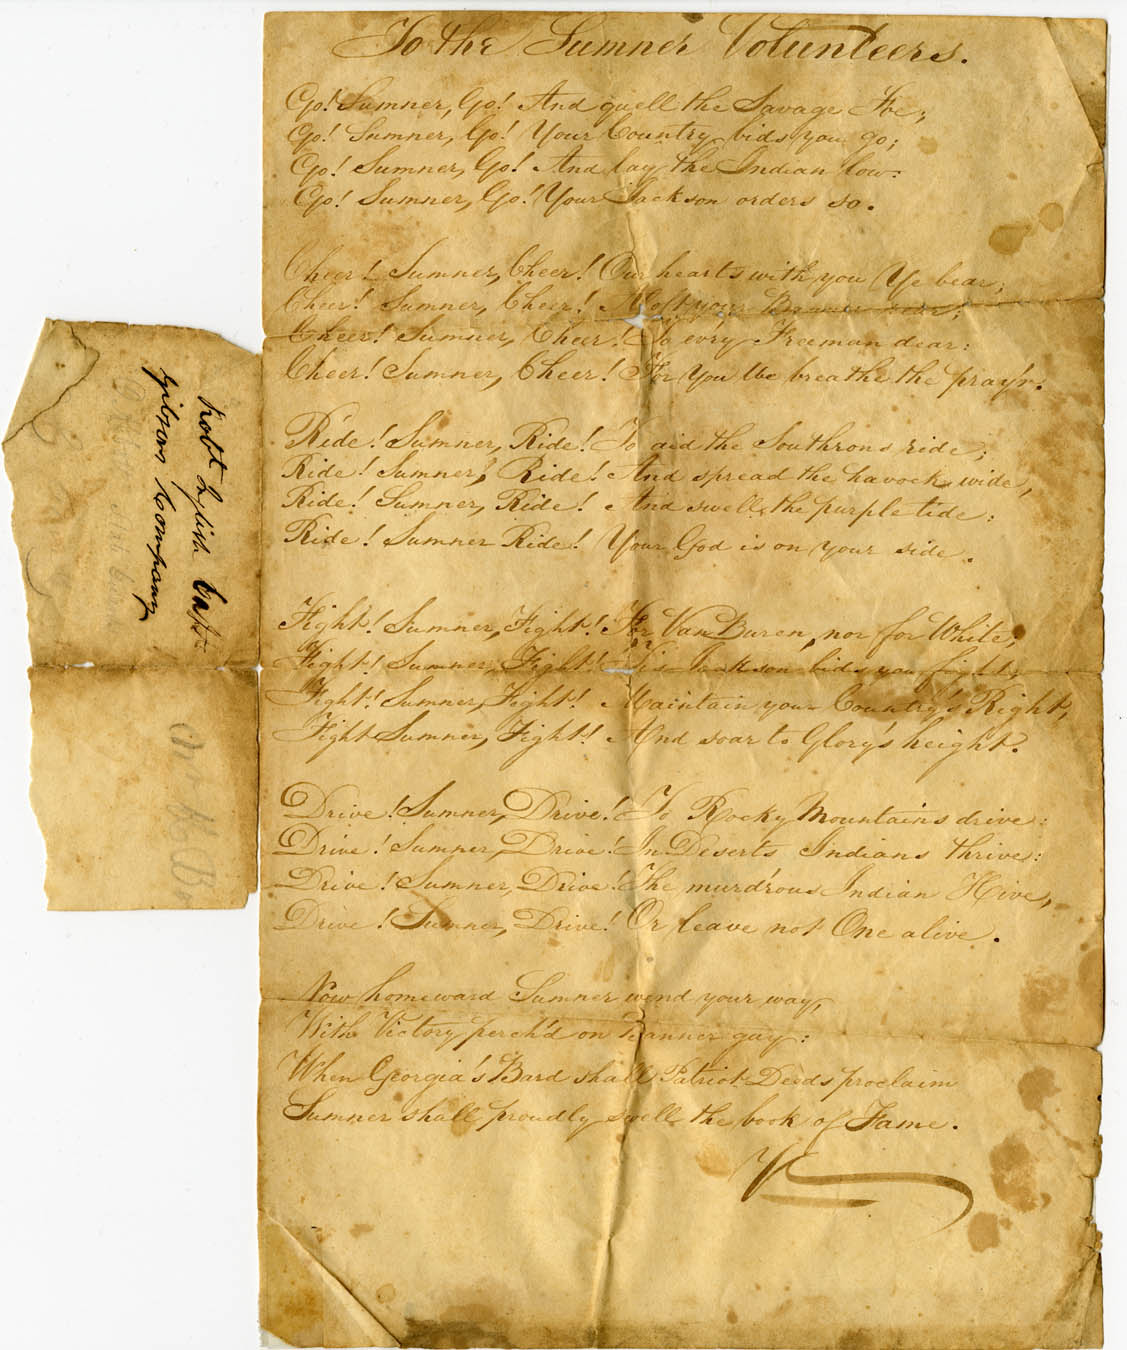 To the Sumner Volunteers.
Go! Sumner, Go! And quell the Savage Foe;
Go! Sumner, Go! Your Country bids you go;
Go! Sumner, Go! And lay the Indian low:
Go! Sumner, Go! Your Jackson orders so.
Cheer! Sumner, Cheer! Our hearts with you Ye bear;
Cheer! Sumner, Cheer! your Banner
Cheer! Sumner, Cheer! To ev'ry Freeman dear:
Cheer! Sumner, Cheer! For You We breathe the pray'r.
Ride! Sumner, Ride! To aid the Southrons ride;
Ride! Sumner, Ride! And spread the havock wide,
Ride! Sumner, Ride! And swell the purple tide:
Ride! Sumner Ride! Your God is on your side.
Fight! Sumner, Fight! For Van Buren, nor for White;
Fight! Sumner, Fight! 'Tis Jackson bids you fight,
Fight! Sumner, Fight! Maintain your Country's Right,
Fight Sumner, Fight! And soar to Glory's height.
Drive! Sumner, Drive! To Rocky Mountains drive:
Drive! Sumner, Drive! In Deserts Indians thrive:
Drive! Sumner, Drive! The murd'rous Indian Hive,
Drive! Sumner, Drive! Or leave not One alive.
Now homeward Sumner wend your way,
With Victory perch'd on Banner gay:
When Georgia's Bard shall Patriot Deeds proclaim
Sumner shall proudly swell the book of Fame.
Robt
Company